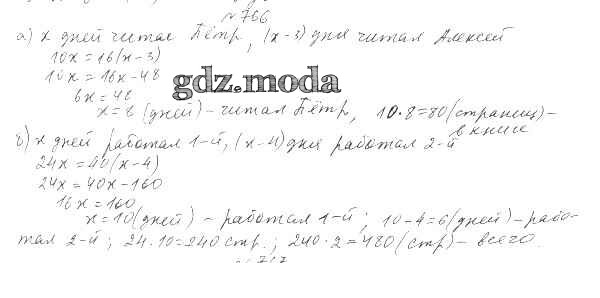 № 766
а) x дней читал Пётр, (x-3) дня читал Алексей
10x = 16(x-3)
10x = 16x-48
gdz.moda
6x = 48
x = 8 (дней) - читал Пётр, 10·8=80 (страниц) -
в книге
б) x дней работал 1-й, (x-4) дня работал 2-й
24x = 40(x-4)
24x = 40x-160
16x = 160
x = 10 (дней) - работал 1-й; 10-4=6 (дней) - рабо-
тал 2-й; 24·10=240 стр.; 240·2=480 (стр) - всего.